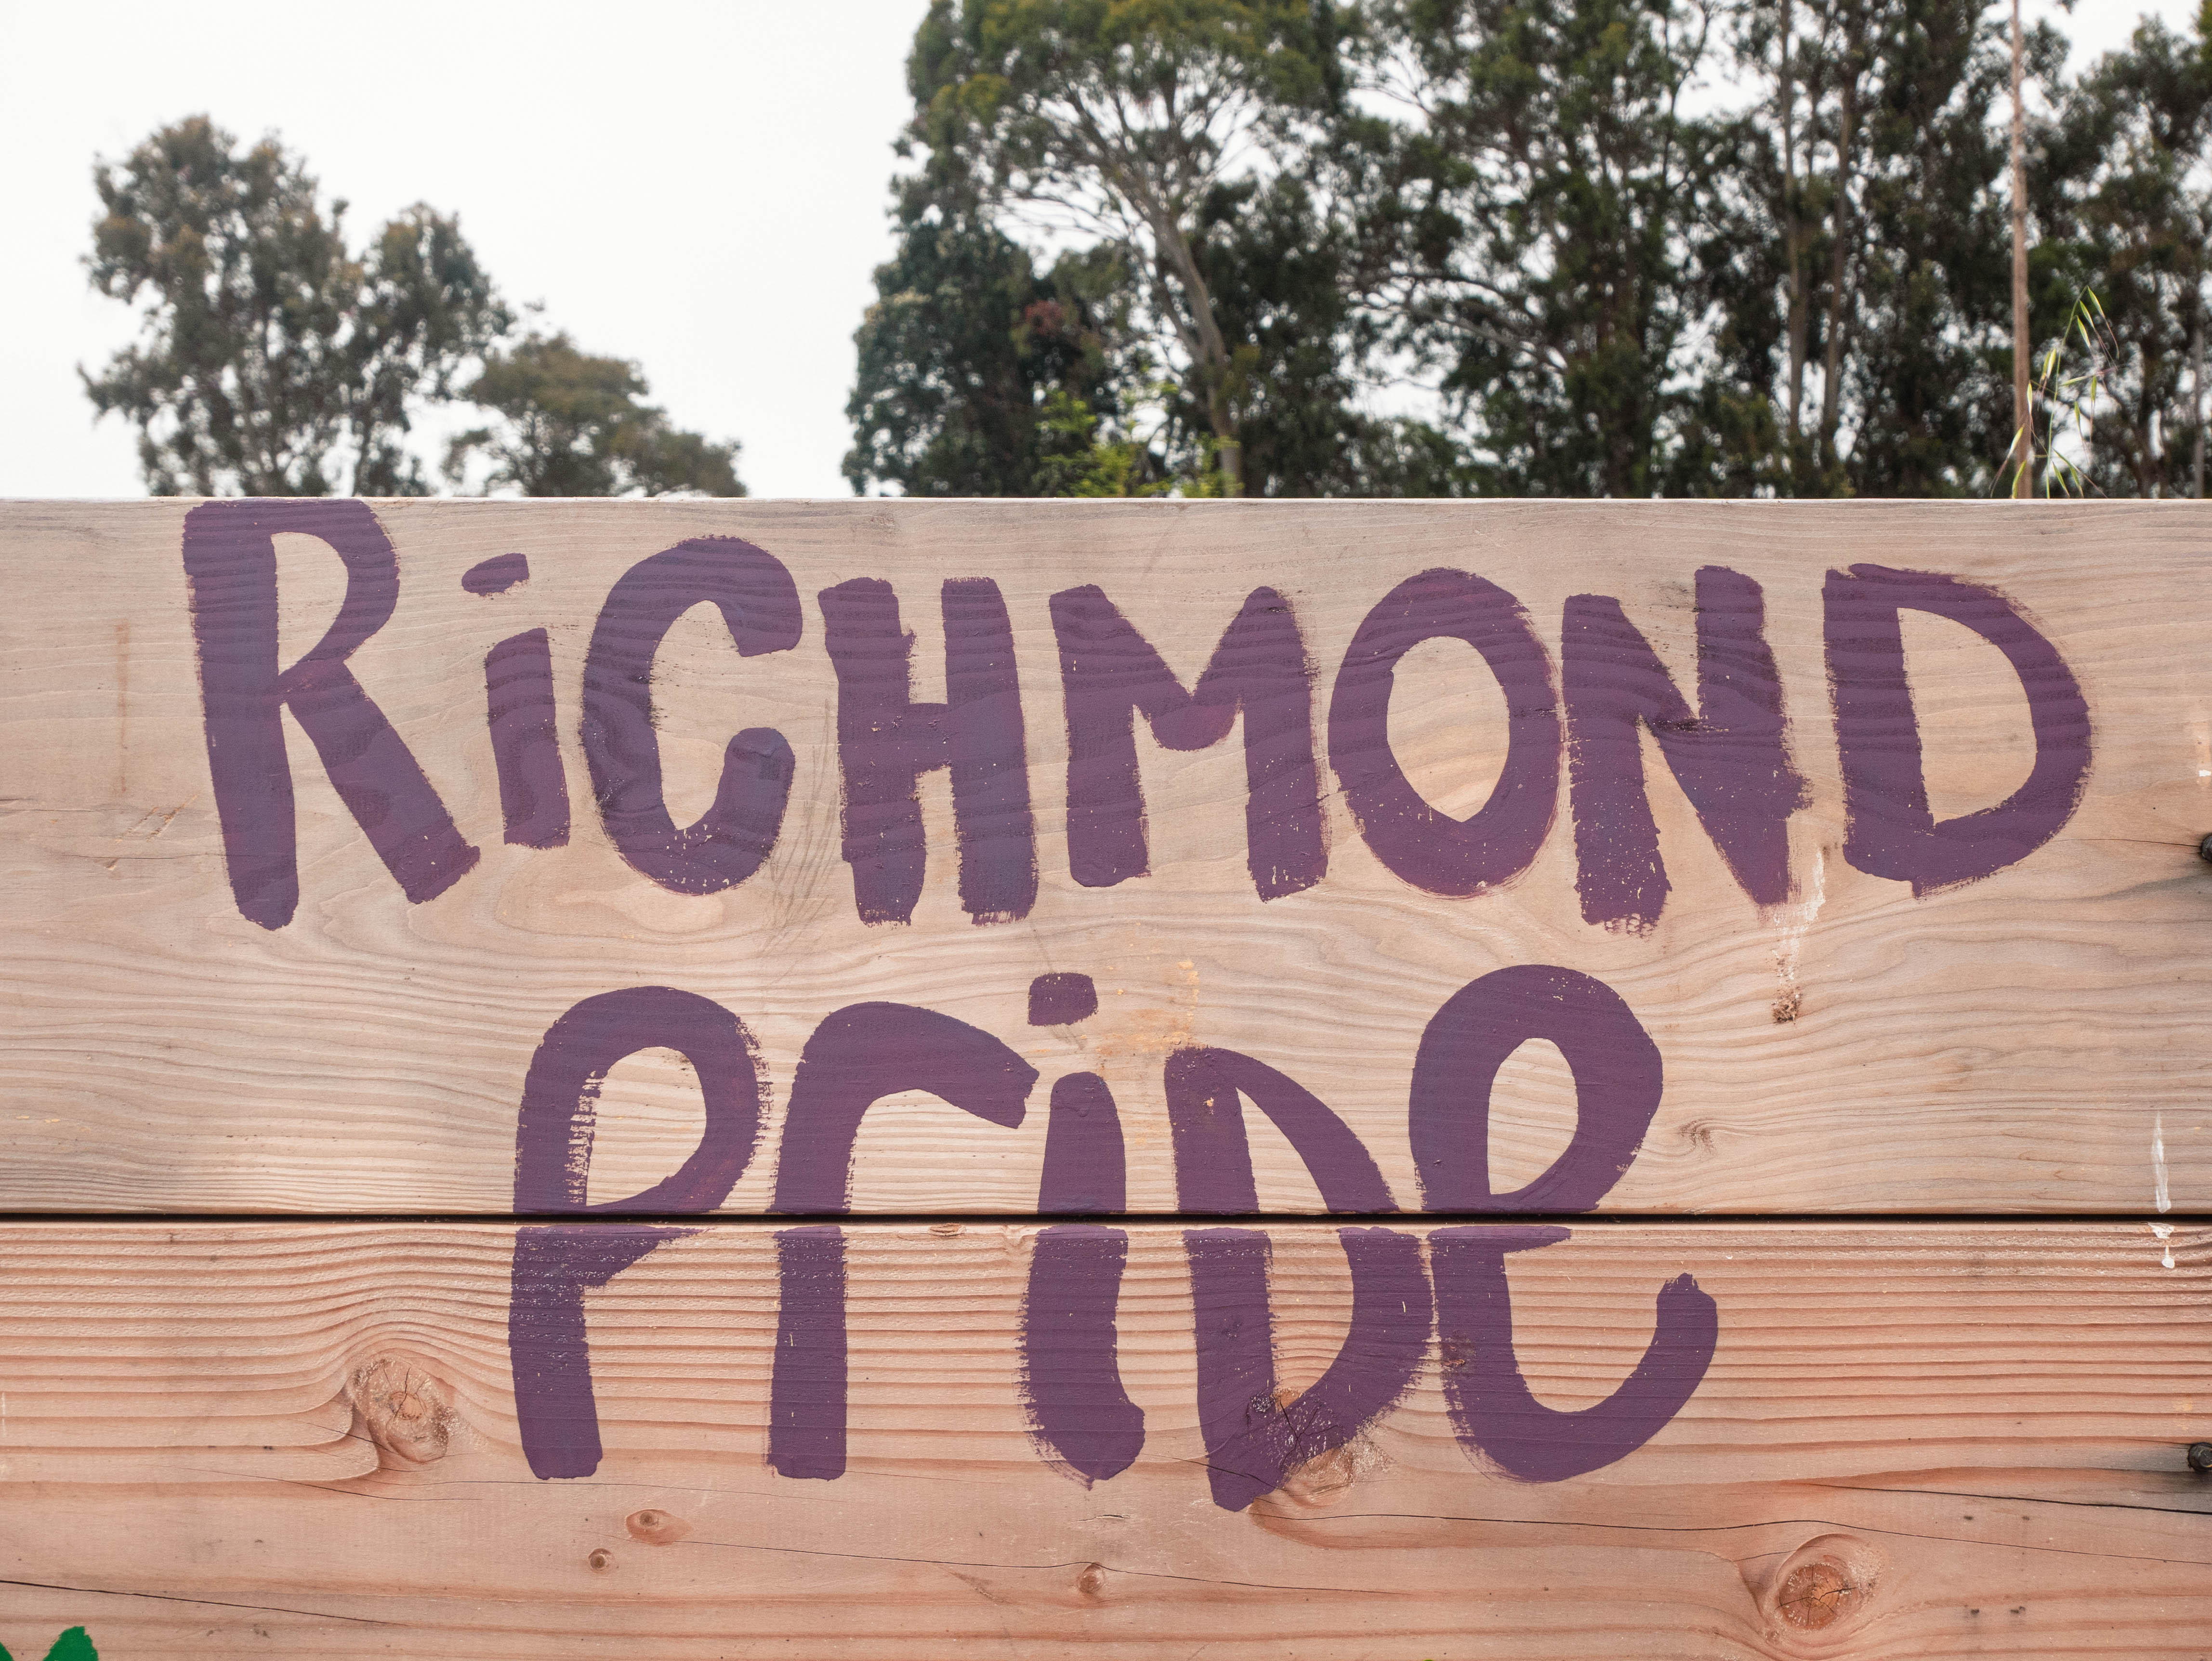 RiCHMOND
PriDe